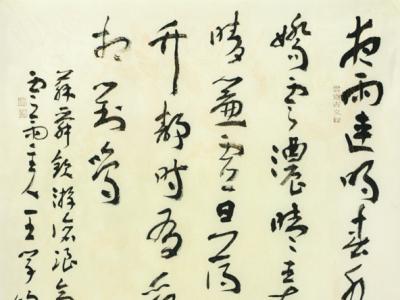 夜雨連明春水
嬌雲濃暖弄
晴簾虛日薄
竹靜時有乳
相對鳴
蘇舜欽游滄浪
主人王